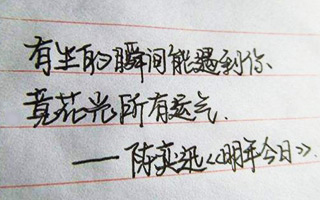 有生的瞬间能遇到你
竟花光所有运气
——陈奕迅《明年今日》